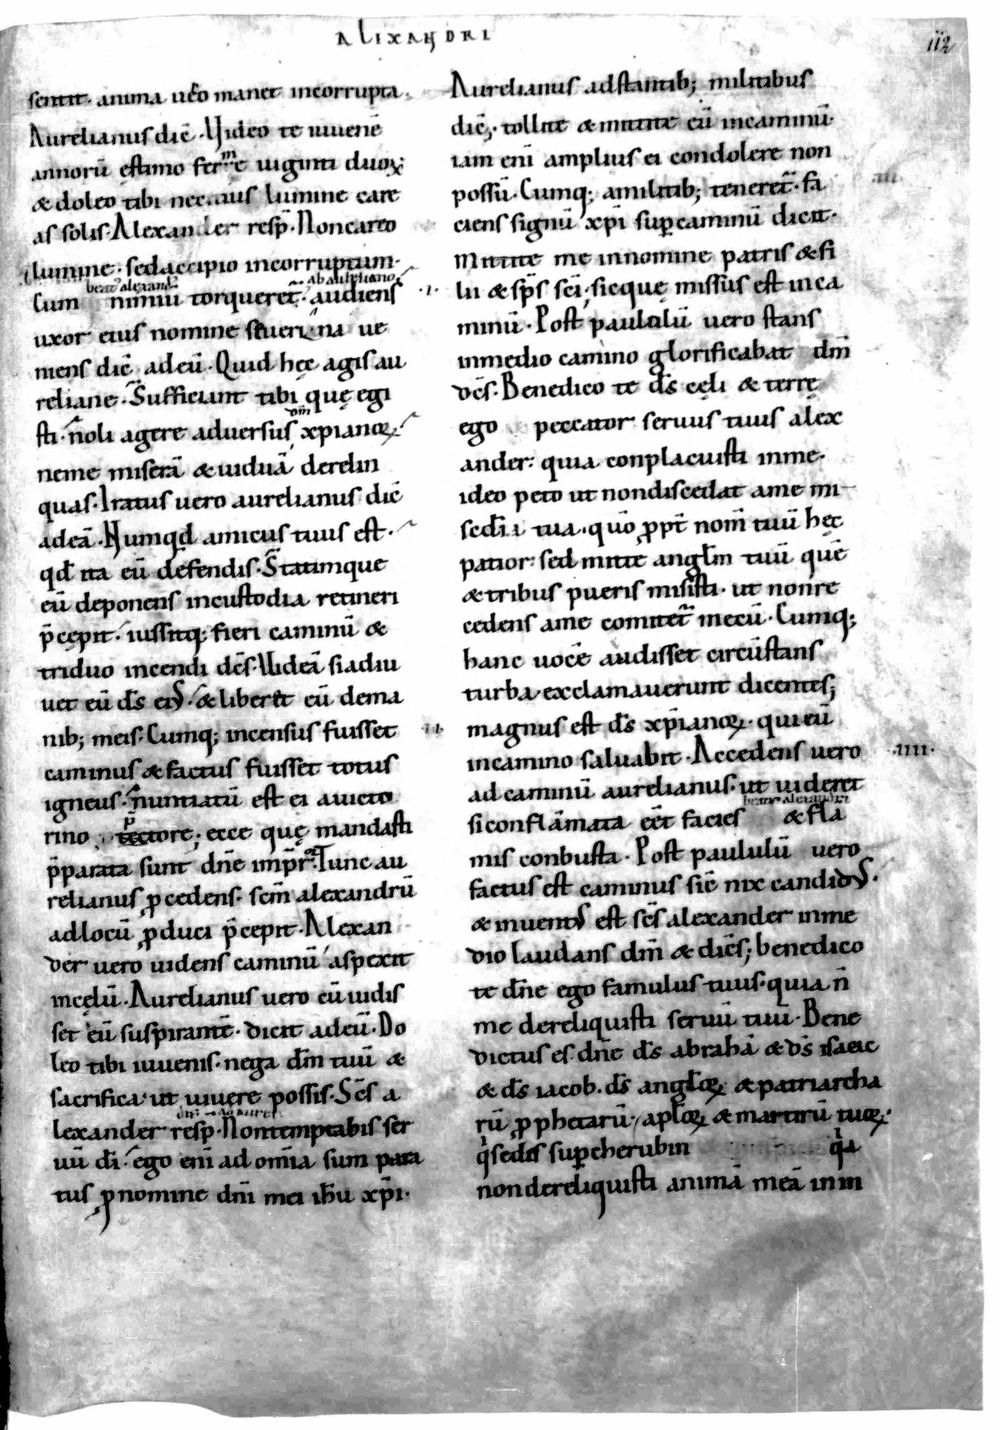 ALIXANDRI
112
sentit. anima uero manet incorrupta.
Aurelianus dic̄. Uideo te iuuenē
annorū ęstimo ferme uiginti duoꝝ
& doleo tibi lumine care
as solis. Alexander resp̄. Non careo
lumine. sed accipio incorruptum.
beat' alexand' ab aureliano
Cum nimiū torqueret̄. audiens
uxor eius nomine seuerina ue
niens dic̄ ad eū. Quid hęc agis au
reliane. Sufficiunt tibi quę egi
sti. noli agere aduersus xp̄ianoꝝ dm̄
ne me miserā & uiduā derelin
quas. Iratus uero aurelianus dic̄
ad eā. Numqd amicus tuus est.
qd̄ ita eū defendis. Statimque
eū deponens in custodia retineri
p̄cepit. iussitq; fieri caminū &
triduo incendi dc̄s. Uideā si adiu
uet eū d̄s eiꝰ. & liberet eū de ma
nib; meis. Cumq; incensus fuisset
.ii.
caminus & factus fuisset totus
igneus. nuntiatū est ei a uicto
rino tectore; ecce quę mandasti
p̄parata sunt dn̄e imp̄r. Tunc au
relianus ꝓcedens. sc̄m alexandrū
ad locū ꝓduci p̄cepit. Alexan
der uero uidens caminū aspexit
in cęlū. Aurelianus uero eū uidis
set eū suspirantē. dicit ad eū. Do
leo tibi iuuenis. nega dm̄ tuū &
sacrifica. ut uiuere possis. Sc̄s a
lexander resp̄. Non temptabis ser
uū di. ego eni ad om̄ia sum para
tus ꝓ nomine dn̄i mei ih̄u xp̄i.
Aurelianus adstantib; militibus
dic̄. tollite & mittite eū in caminū.
iam eni amplius ei condolere non
.iii.
possū. Cumq; a militib; teneret̄. fa
ciens signū xp̄i suꝑ caminū dicit.
Mittite me in nomine patris & fi
.i.
lii & sp̄s sc̄i. sicque missus est in ca
minū. Post paululū uero stans
in medio camino glorificabat dm̄
dc̄s. Benedico te d̄s cęli & terrę
ego peccator seruus tuus alex
ander. quia conplacuisti in me.
ideo peto ut non discedat a me mi
sed̄ia tua. quō ꝓpt̄ nom̄ tuū hęc
patior. sed mitte angl̄m tuū quē
& tribus pueris misisti. ut non re
cedens a me comitet̄ mecū. Cumq;
hanc uocē audisset circūstans
turba exclamauerunt dicentes;
magnus est d̄s xp̄ianoꝝ. qui eū
in camino saluabit. Accedens uero
.iiii.
ad caminū aurelianus. ut uideret
beati alexandri
si conflāmata eēt facies & fla
mis conbusta. Post paululū uero
factus est caminus sic̄ nix candidꝰ.
& inuentꝰ est sc̄s alexander in me
dio laudans dm̄ & dic̄s; benedico
te dn̄e ego famulus tuus. quia n̄
me dereliquisti seruū tuū. Bene
dictus es dn̄e d̄s abrahā & d̄s isaac
& d̄s iacob. d̄s angl̄oꝝ & patriarcha
rū ꝓphetarū. apl̄oꝝ & martirū tuoꝝ.
q̄ sedes suꝑ cherubin q̄a
non dereliquisti animā meā in in